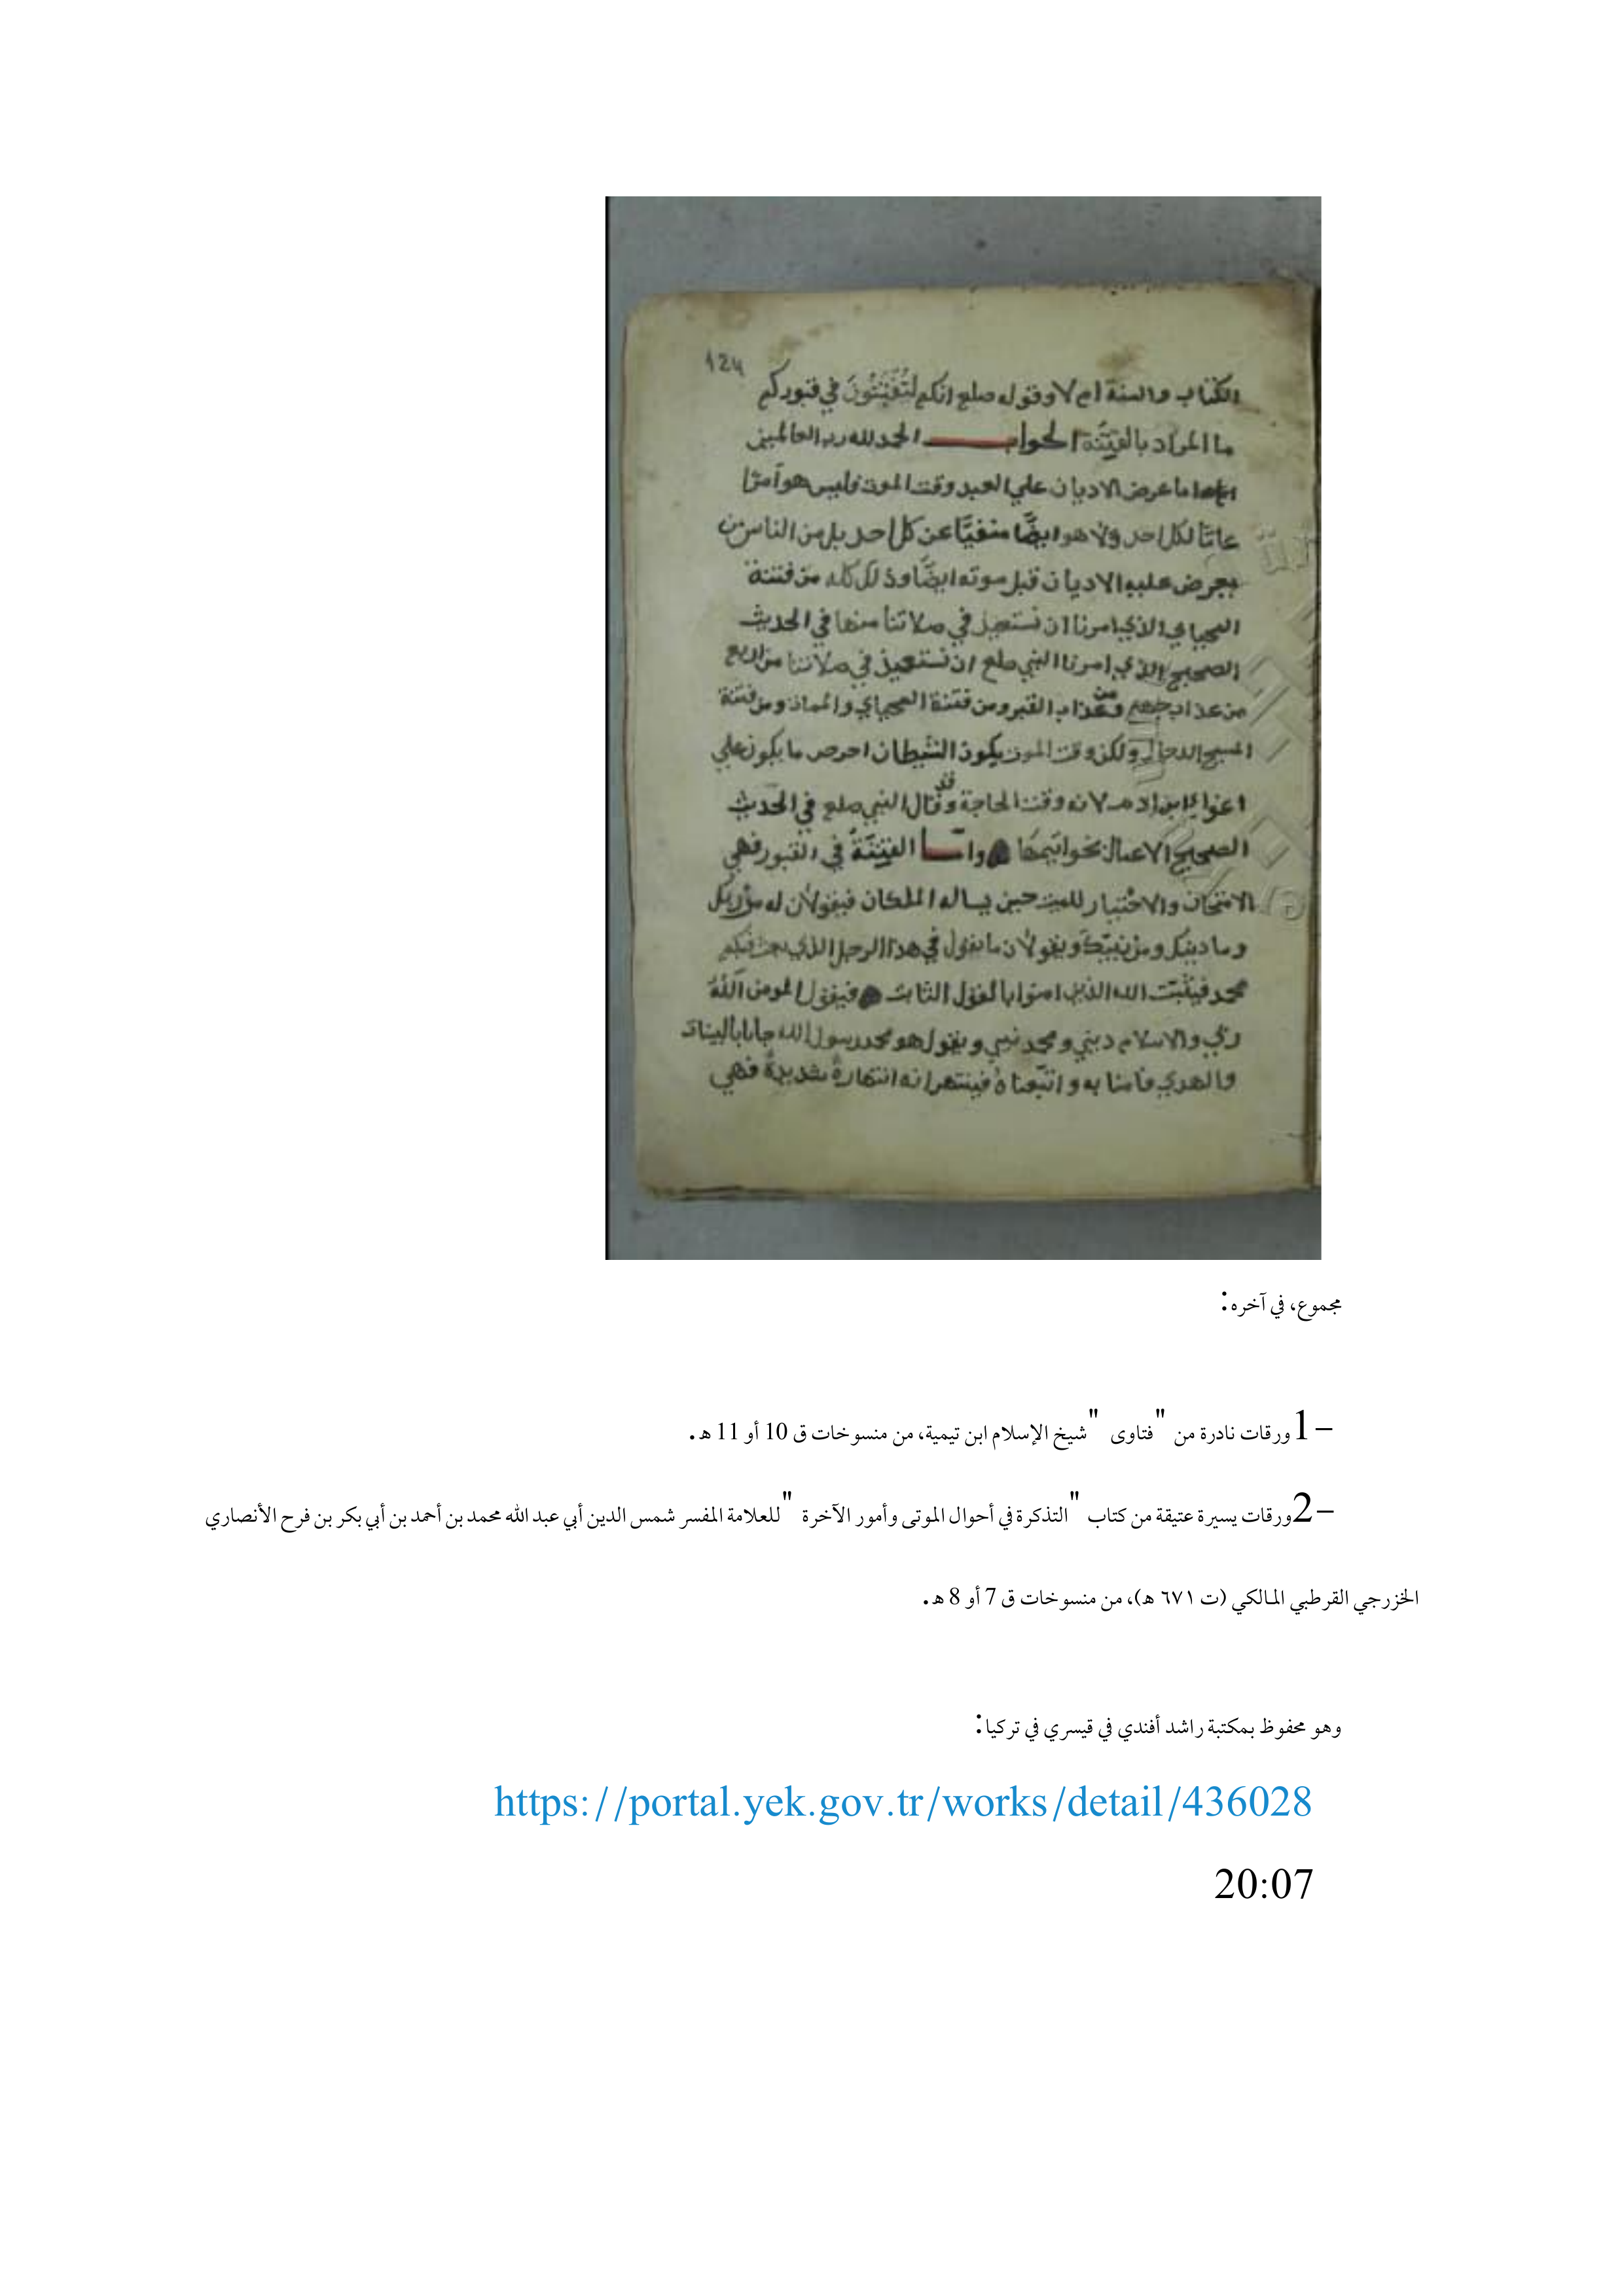 124
الكتاب والسنة ام لا وقوله صلعم انكم لتُفْتَنُونَ في قبوركم
ما المراد بالفِتْنَة الجواب الحمد لله رب العالمين
اما عرض الاديان علي العبد وقت الموت فليس هو أمرًا
عامًا لكل احد ولا هو ايضًا منفيًا عن كل احد بل من الناس من
يعرض عليه الاديان قبل موته ايضًا وذلك كله من فتنة
المحياي الذي امرنا ان نستعيذ في صلاتنا منها في الحديث
الصحيح الذي امرنا النبي صلعم ان نستعيذ في صلاتنا من اربع
من عذاب جهنم ومن عذاب القبر ومن فتنة المحياي والممات ومن فتنة
المسيح الدجال ولكن وقت الموت يكون الشيطان احرص ما يكون علي
اغواء ابن ادم لانه وقت الحاجة وقد قال النبي صلعم في الحديث
الصحيح الاعمال بخواتيمها واما الفِتْنَةُ في القبور فهي
الامتحان والاختبار للميت حين يساله الملكان فيقولان له من ربك
وما دينك ومن نبيك ويقولان ما تقول في هذا الرجل الذي بعث فيكم
محمد فيثبت الله الذين امنوا بالقول الثابت فيقول المومن اللهُ
ربي والاسلام ديني ومحمد نبيي ويقول هو محمد رسول الله جانا بالبينات
والهدي فامنا به واتبعناهُ فينتهرانه انتهارةً شديدةً فهي
مجموع، في آخره:
1- ورقات نادرة من "فتاوى" شيخ الإسلام ابن تيمية، من منسوخات ق 10 أو 11 هـ.
2- ورقات يسيرة عتيقة من كتاب "التذكرة في أحوال الموتى وأمور الآخرة" للعلامة المفسر شمس الدين أبي عبد الله محمد بن أحمد بن أبي بكر بن فرح الأنصاري
الخزرجي القرطبي المالكي (ت ٦٧١ هـ)، من منسوخات ق 7 أو 8 هـ.
وهو محفوظ بمكتبة راشد أفندي في قيسري في تركيا:
https://portal.yek.gov.tr/works/detail/436028
20:07